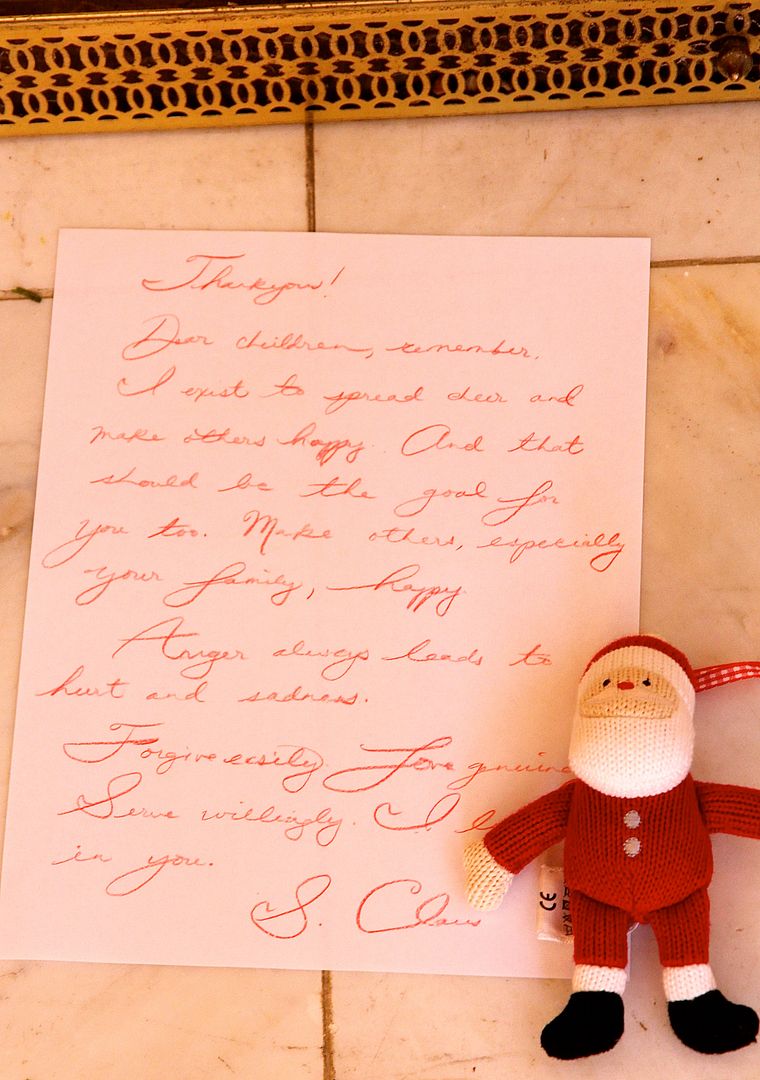 Thankyou!
Dear children, remember,
I exist to spread cheer and
make others happy. And that
should be the goal for
you too. Make others, especially
your family, happy.
Anger always leads to
hurt and sadness.
Forgive easily. Love genuine
Serve willingly. I
in you.
S. Claus
CE